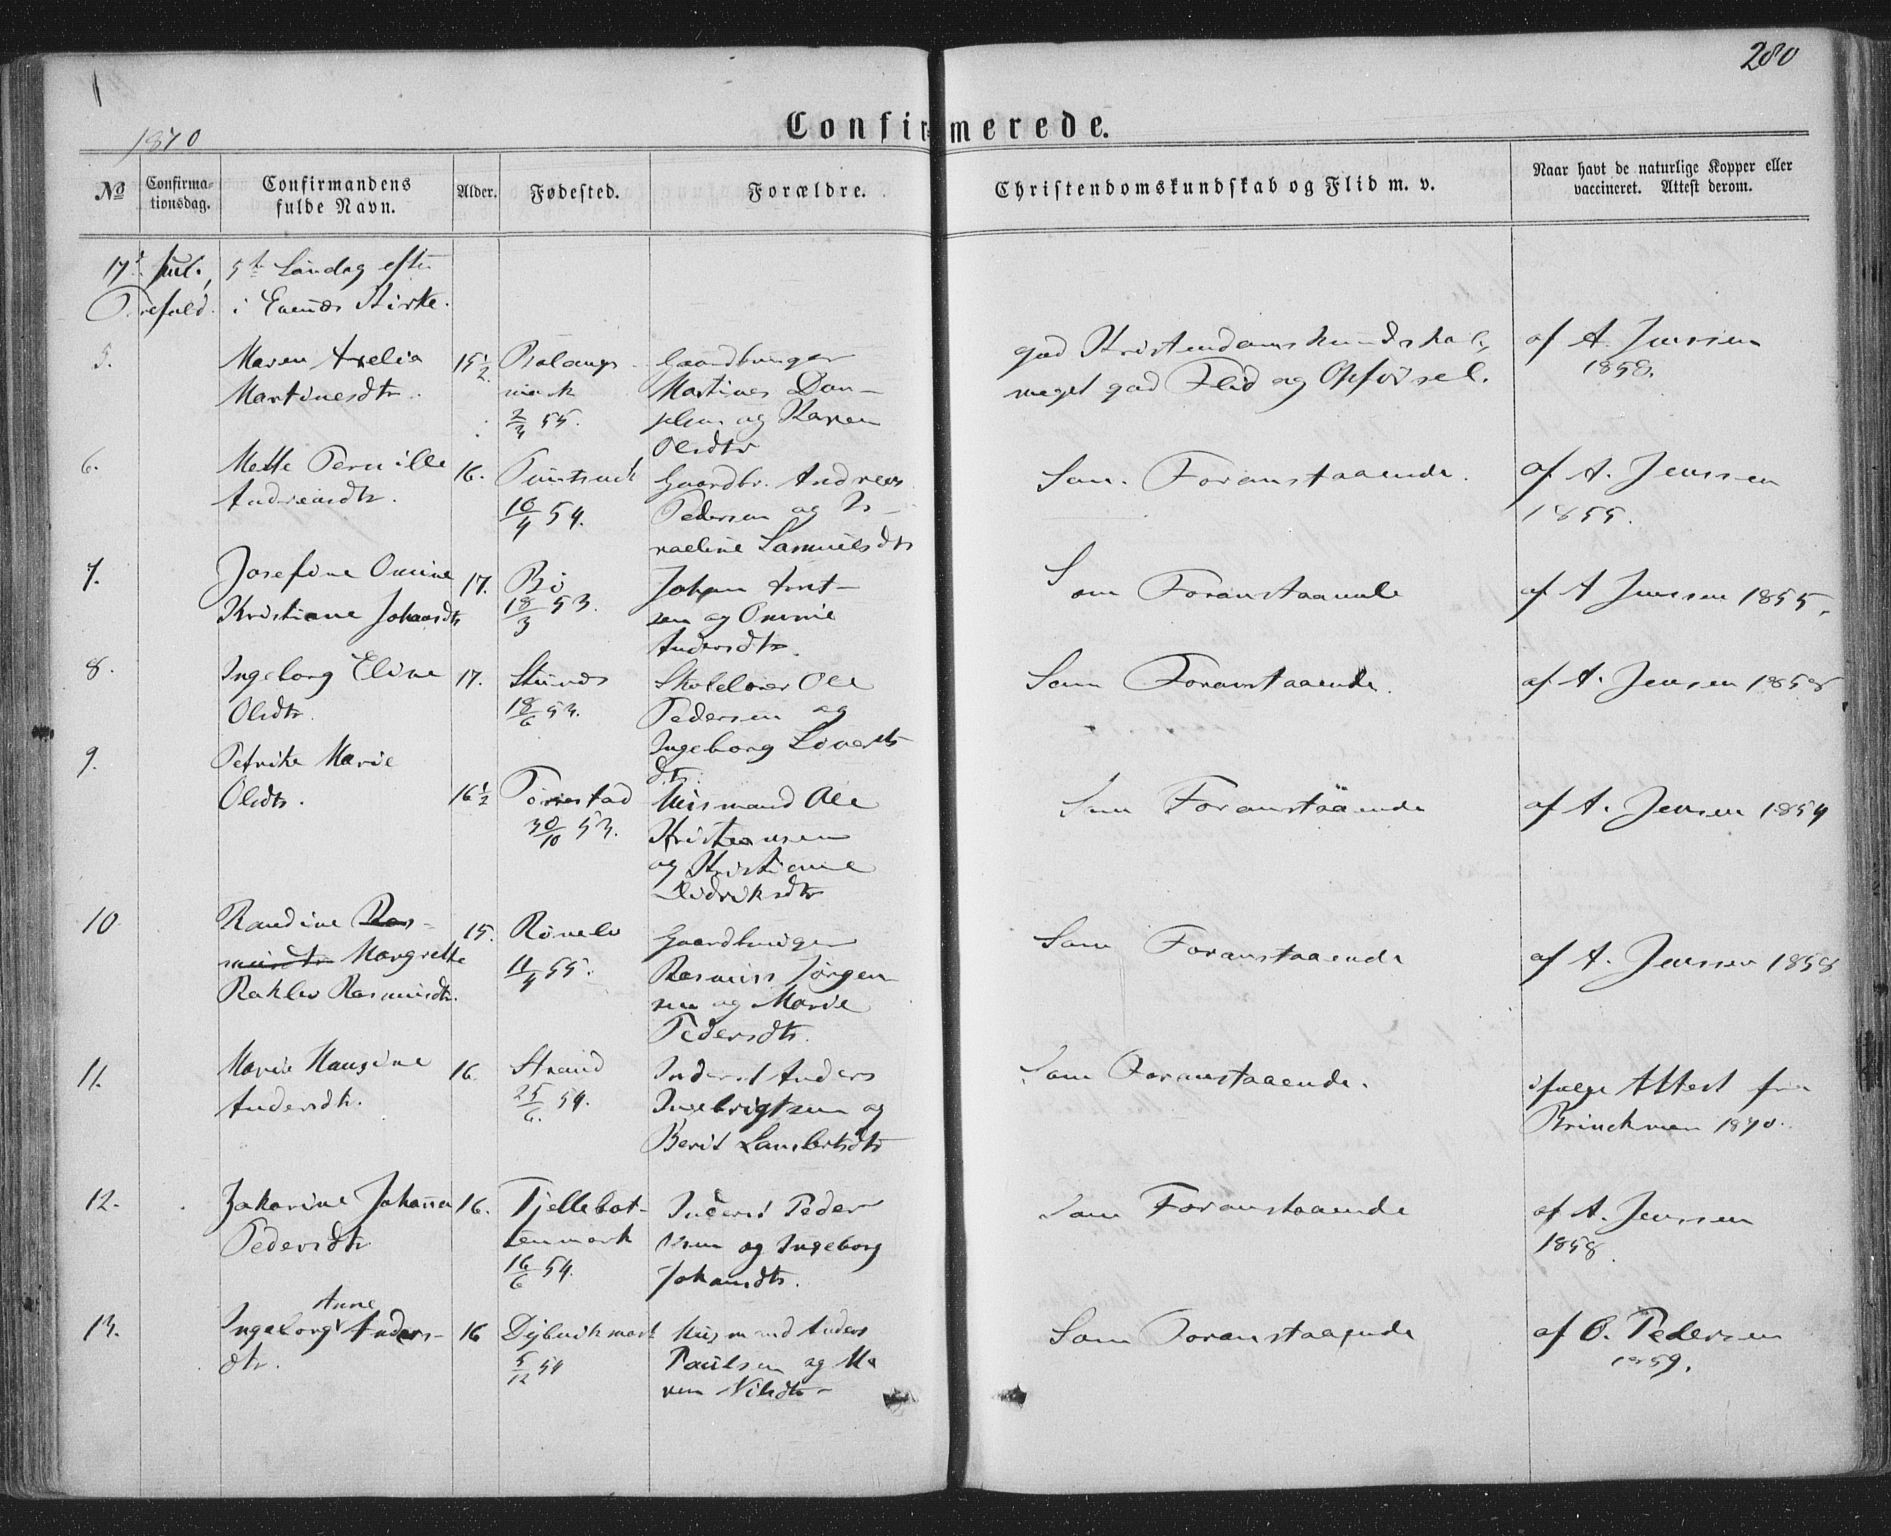 280
1870
Confirmerede.
No
Confirmationsdag.
Confirmandens fulde Navn.
Alder.
Fødested.
Forældre.
Christendomskundskab og Flid m. v.
Naar havt de naturlige Kopper eller
vaccineret. Attest derom.
17d Jul., 5te Söndag efter
Trefold. i Evenæs Kirke.
5.
Maren Axelia
Martinesdtr.
15 1/2
Balangs
mark
2/3 55.
Gaardbruger
Martines Dan-
ielsen og Karen
Olsdtr
god Kristendomskundskab,
meget god Flid og Opförsel.
af A. Jenssen
1858.
6.
Mette Pernille
Andreasdtr.
16.
10/4 54.
Gaardbr. Andreas
Pedersen og Is-
raeline Samuelsdtr
Som Foranstaaende.
af A. Jenssen
1855.
7.
Josefine Omine
Kristiane Johansdtr
17.
Bö
18/3 53.
Johan Arnt-
sen og Ommie
Andersdtr.
Som Foranstaaende
af A Jenssen 1855.
8.
Ingeborg Eline
Olsdtr.
17.
18/6 53.
Skolelærer Ole
Pedersen og
Ingeborg Siverts
dtr.
Som Foranstaaende.
af A. Jensen 1858
9.
Petrike Marie
Olsdtr.
16 1/2
Törrestad
30/10 53.
Husmand Ole
Kristiansen
og Kristianne
Didriksdtr
Som Foranstaaende
af A. Jensen 1854
10
Randine Ras-
musdtr Margrethe
Raklev Rasmusdtr.
15.
Rönelv
11/4 55.
Gaardbruger
Rasmus Jörgen
sen og Marie
Pedersdtr.
Som Foranstaaende
af A. Jenssen 1858
11.
Marie Hansine
Andersdtr.
16
Strand
25/6. 54.
Inderst Anders
Ingebrigtsen og
Berit Lambertsdtr
Som Foranstaaende.
ifølge Attest fra
Brinchman 1870.
12.
Zakarine Johanna
Pedersdtr
16.
Fjellebot-
tenmark
16/6 54.
Inderst Peder
sen og Ingeborg
Johansdtr.
Som Foranstaaende
af A. Jenssen
1858.
13.
Anne
Ingeborg Anders-
dtr.
16
Dybvikmark
5/12 54
Husmand Anders
Paulsen og Ma
ren Nilsdtr
Som Foranstaaende
af O. Pedersen
1859.